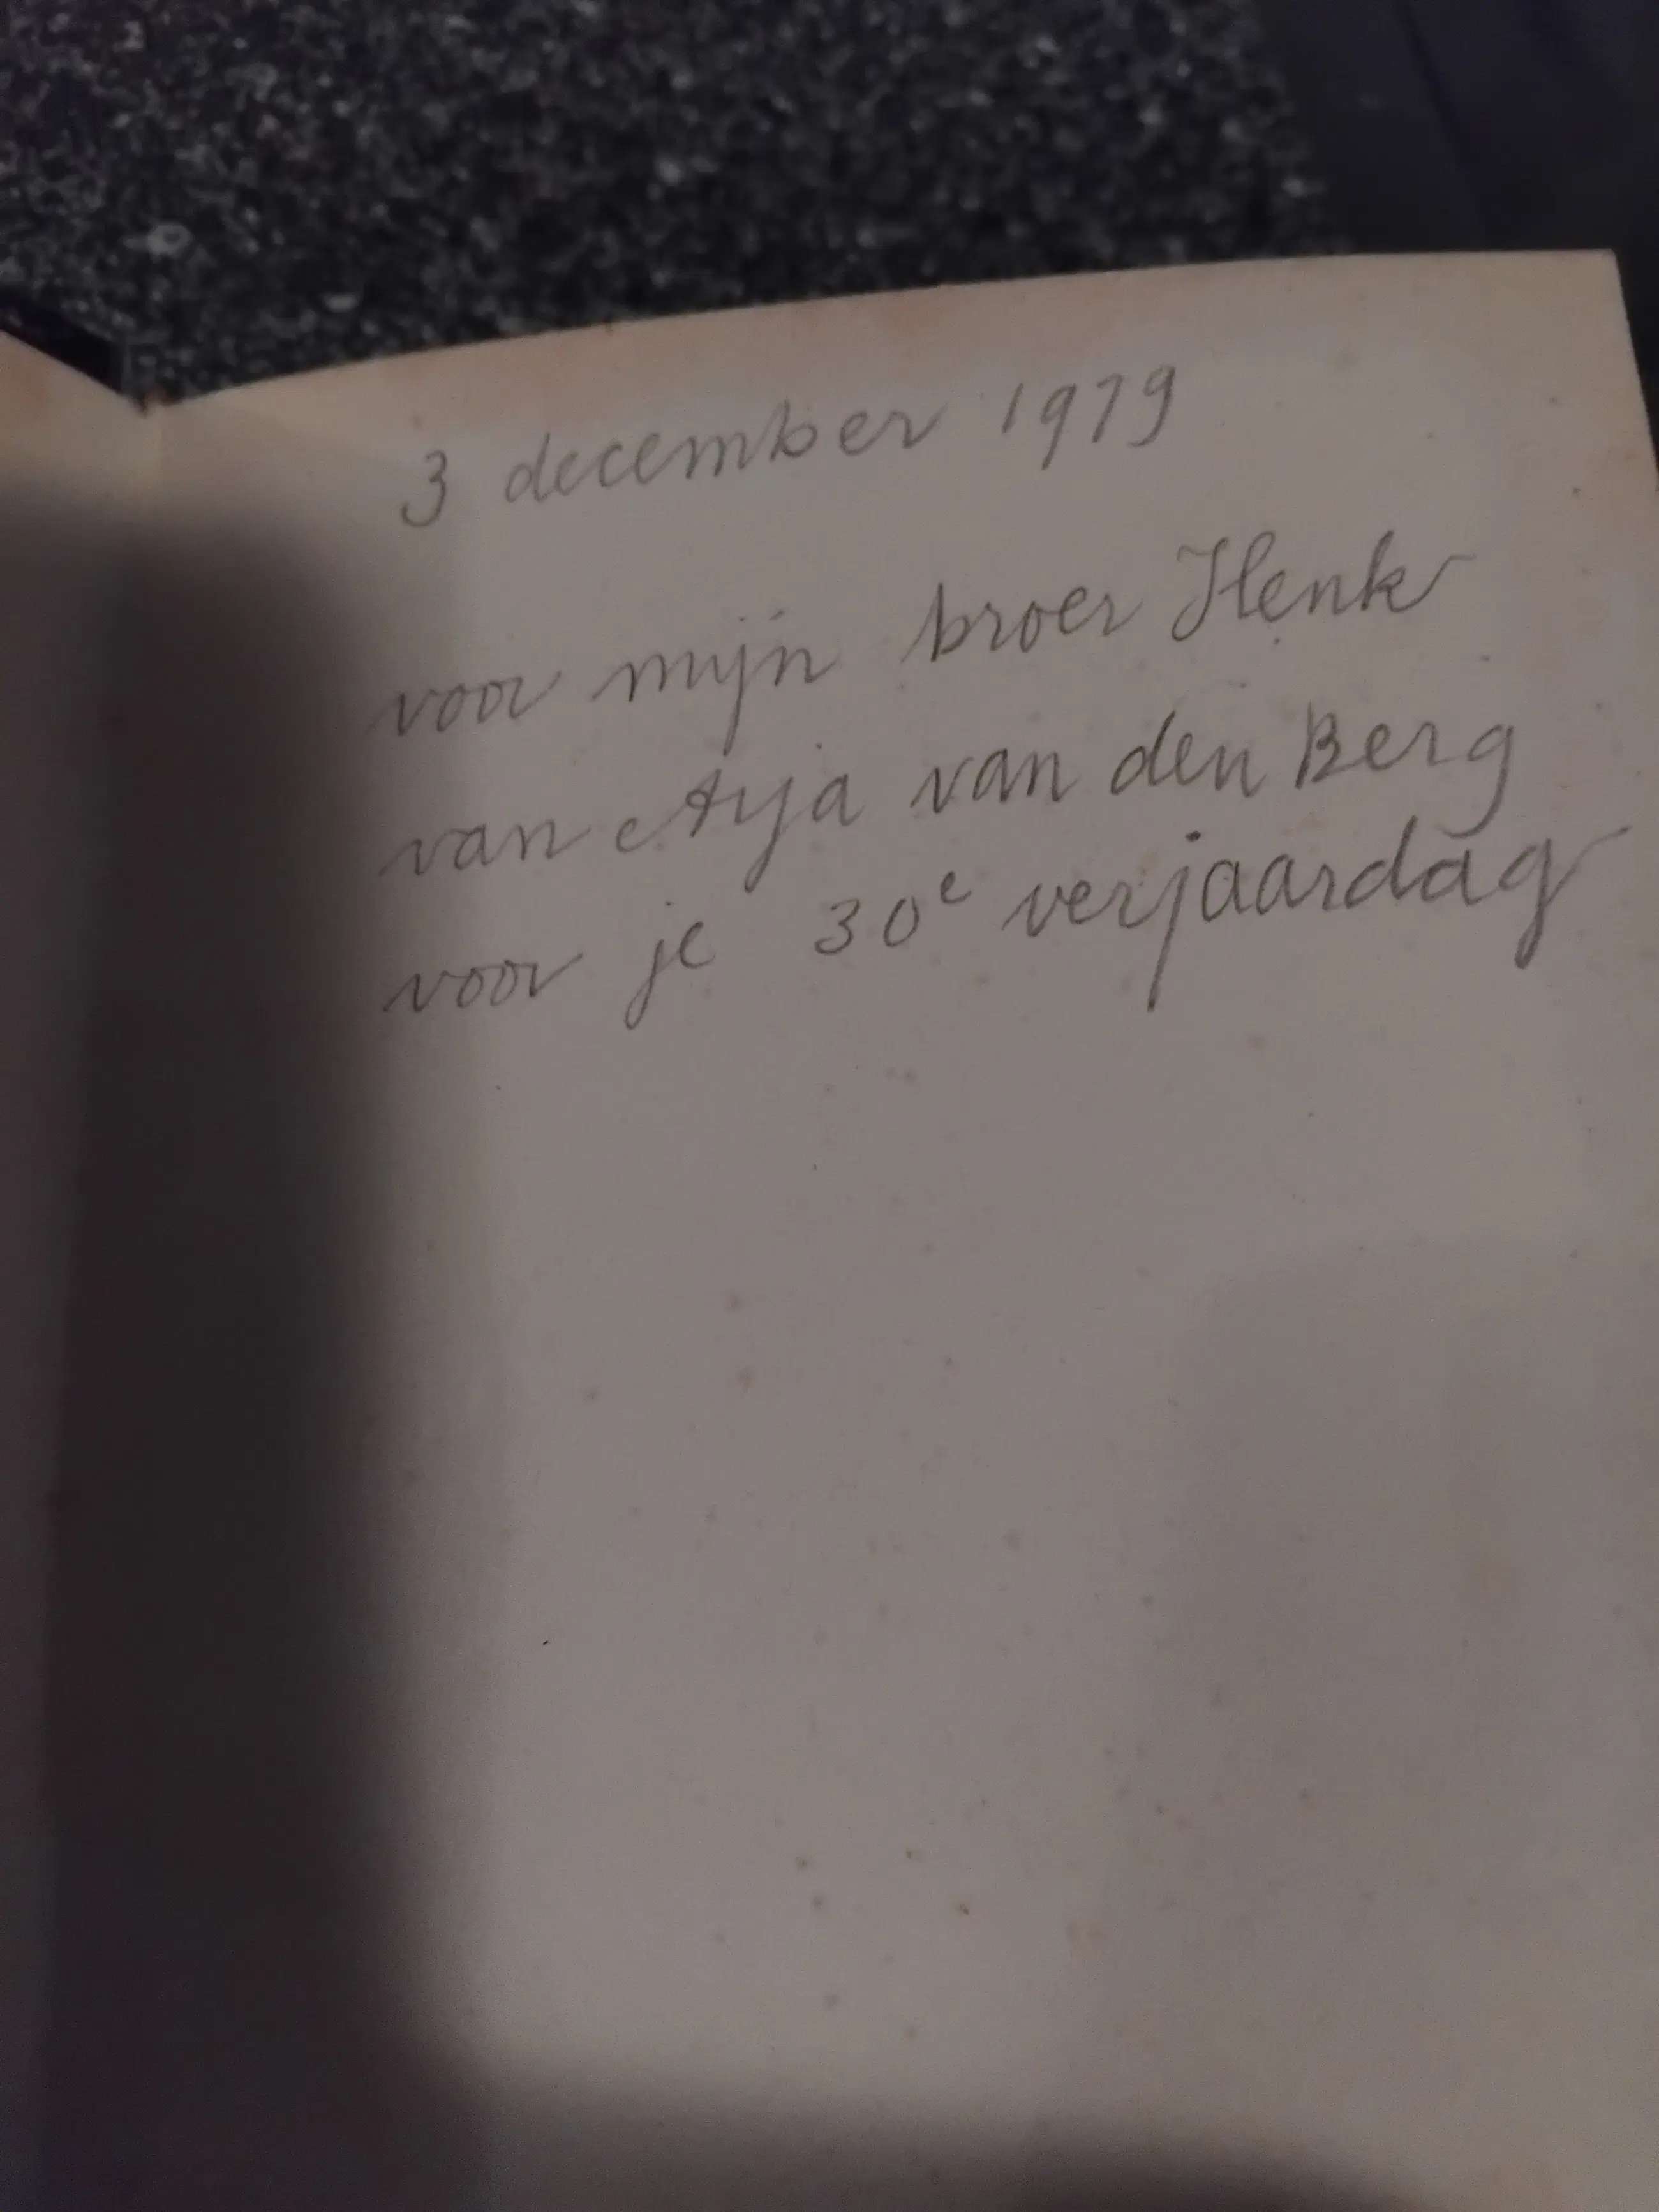 3 december 1979
voor mijn broer Henk
van Arja van den Berg
voor je 30e verjaardag